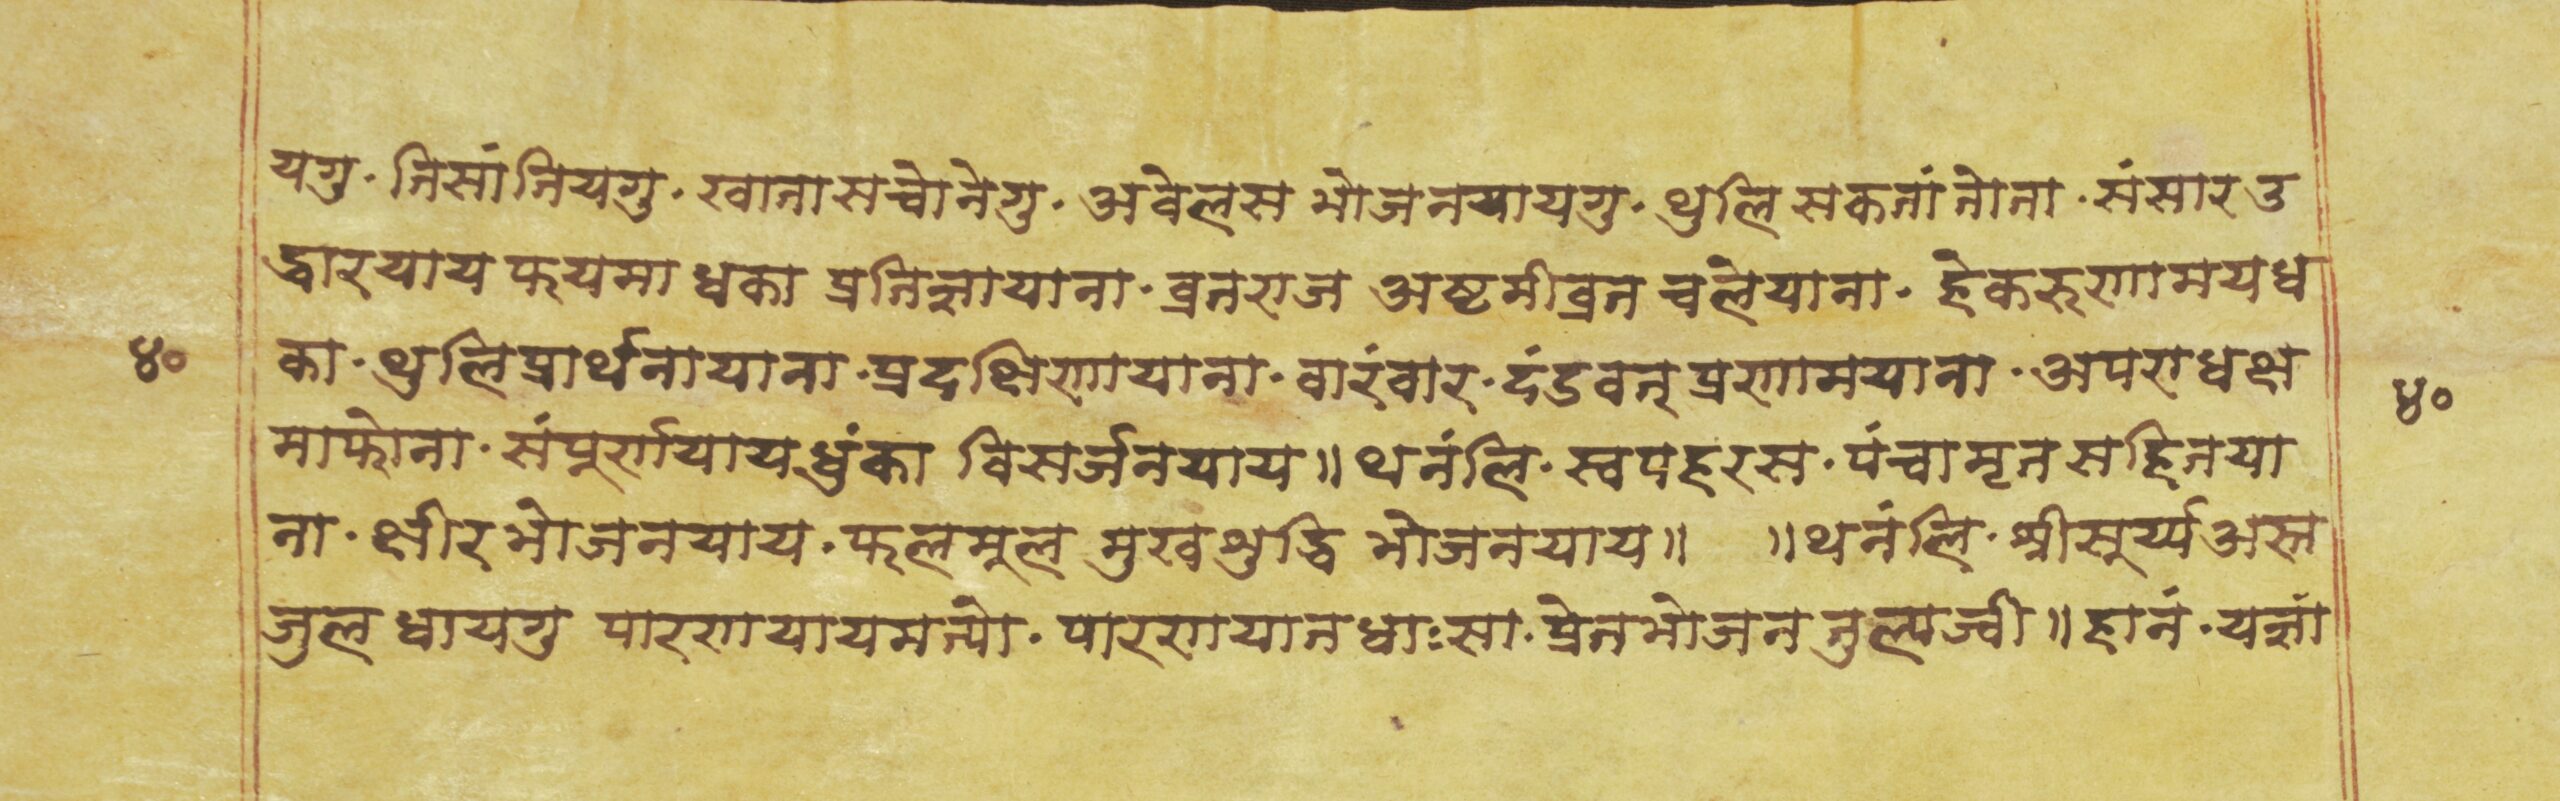 यगु · तिसां तियगु · खातास च्वोनेगु · अवेलस भोजनयायगु · थुलि सकतां तोता · संसार उ
द्धारयाय फयमा धका प्रतिज्ञायाना · व्रतराज अष्टमीव्रत चलेयाना · हे करुणामय ध
का · थुलि प्रार्थनायाना · प्रदक्षिणायाना · वारंवार · दंडवत् प्रणामयाना · अपराध क्ष
माफोना · संपूर्णयाय धुंका विसर्जनयाय ॥ थनंलि · स्वपहरस · पंचामृत सहितया
ना · क्षीरभोजनयाय · फलमूल मुखशुद्धि भोजनयाय ॥ ॥ थनंलि · श्रीसूर्य्य अस्त
जुल धायगु पारणयाय मत्यो · पारणयात धाःसा · प्रेतभोजन तुल्य ज्वी ॥ हानं · यज्ञां
४०
४०